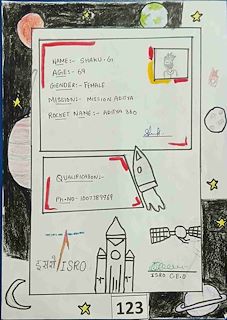 NAME:- SHAKU.G
AGE:- 69
GENDER:- FEMALE
MISSION:- MISSION ADITYA
ROCKET NAME:- ADITYA 360
QUALIFICATION:-
Ph-NO- 1007389969
इसरो ISRO
ISRO C.E.O
123